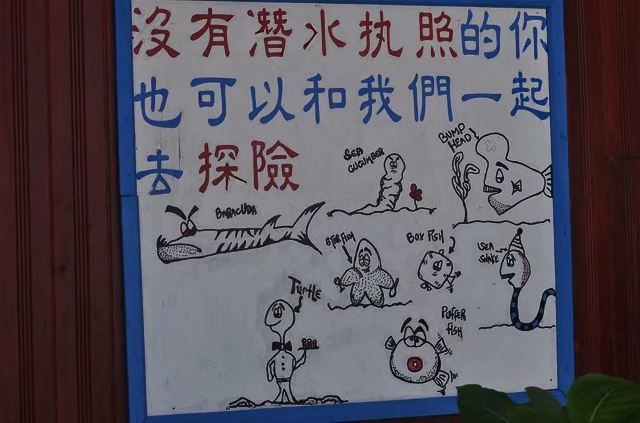 沒有潛水执照的你
也可以和我們一起
去探險
SEA CUCUMBER
BUMP HEAD!
BARACUDA
STAR FISH
BOX FISH
SEA SNAKE
TURTLE
PUFFER FISH